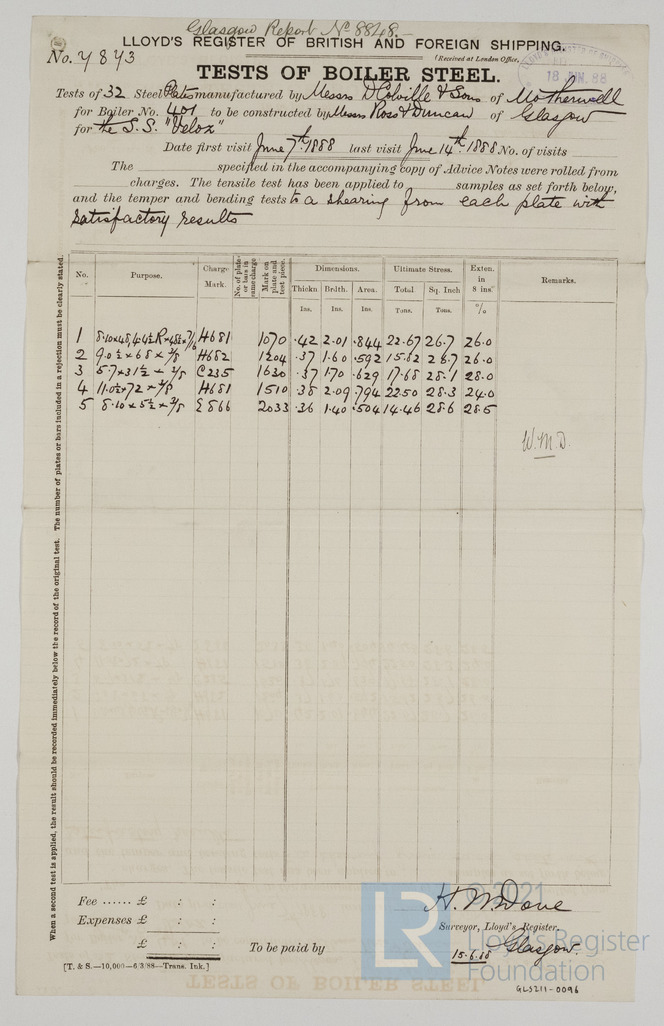 Glasgow Report No 8848.-
LLOYD'S REGISTER OF BRITISH AND FOREIGN SHIPPING.
No. 7873
(Received at London Office,
18 JUN. 88
TESTS OF BOILER STEEL.
Tests of 32 Steel Plates manufactured by Messrs D Colville & Sons of Motherwell
for Boiler No. 401 to be constructed by Messrs Ross & Duncan of Glasgow
for the S.S. "Velox"
Date first visit June 7th 1888 last visit June 14th 1888 No. of visits
The specified in the accompanying copy of Advice Notes were rolled from
charges. The tensile test has been applied to samples as set forth below,
and the temper and bending tests to a shearing from each plate with
satisfactory results
When a second test is applied, the result should be recorded immediately below the record of the original test. The number of plates or bars included in a rejection must be clearly stated.
No. Purpose. Charge Mark. No. of plate or bars in same charge Mark on plate and test piece. Dimensions. Ultimate Stress. Exten. in 8 ins. Remarks.
Thickn Brdth. Area. Total Sq. Inch
Ins. Ins. Ins. Tons. Tons. %
1 H681 1070 .42 2.01 .844 22.67 26.7 26.0
2 9.0½ x 68 x 3/8 H682 1204 .37 1.60 .592 15.82 26.7 26.0
3 5.7 x 31½ x 3/8 C235 1630 .37 1.70 .629 17.68 28.1 28.0
4 11.0½ x 72 x 3/8 H681 1510 .38 2.09 .794 22.50 28.3 24.0
5 8.10 x 5½ x 3/8 E866 2033 .36 1.40 .504 14.46 28.6 28.5
W.M.D.
Fee ...... £ : :
Expenses £ : :
£ : :
To be paid by
H. M. Dove
Surveyor, Lloyd's Register.
15.6.88 Glasgow.
[T. & S.—10,000—6/3/88—Trans. Ink.]
LR
© 2021
Lloyd's Register
Foundation
TESTS OF BOILER STEEL
GLS211-0096